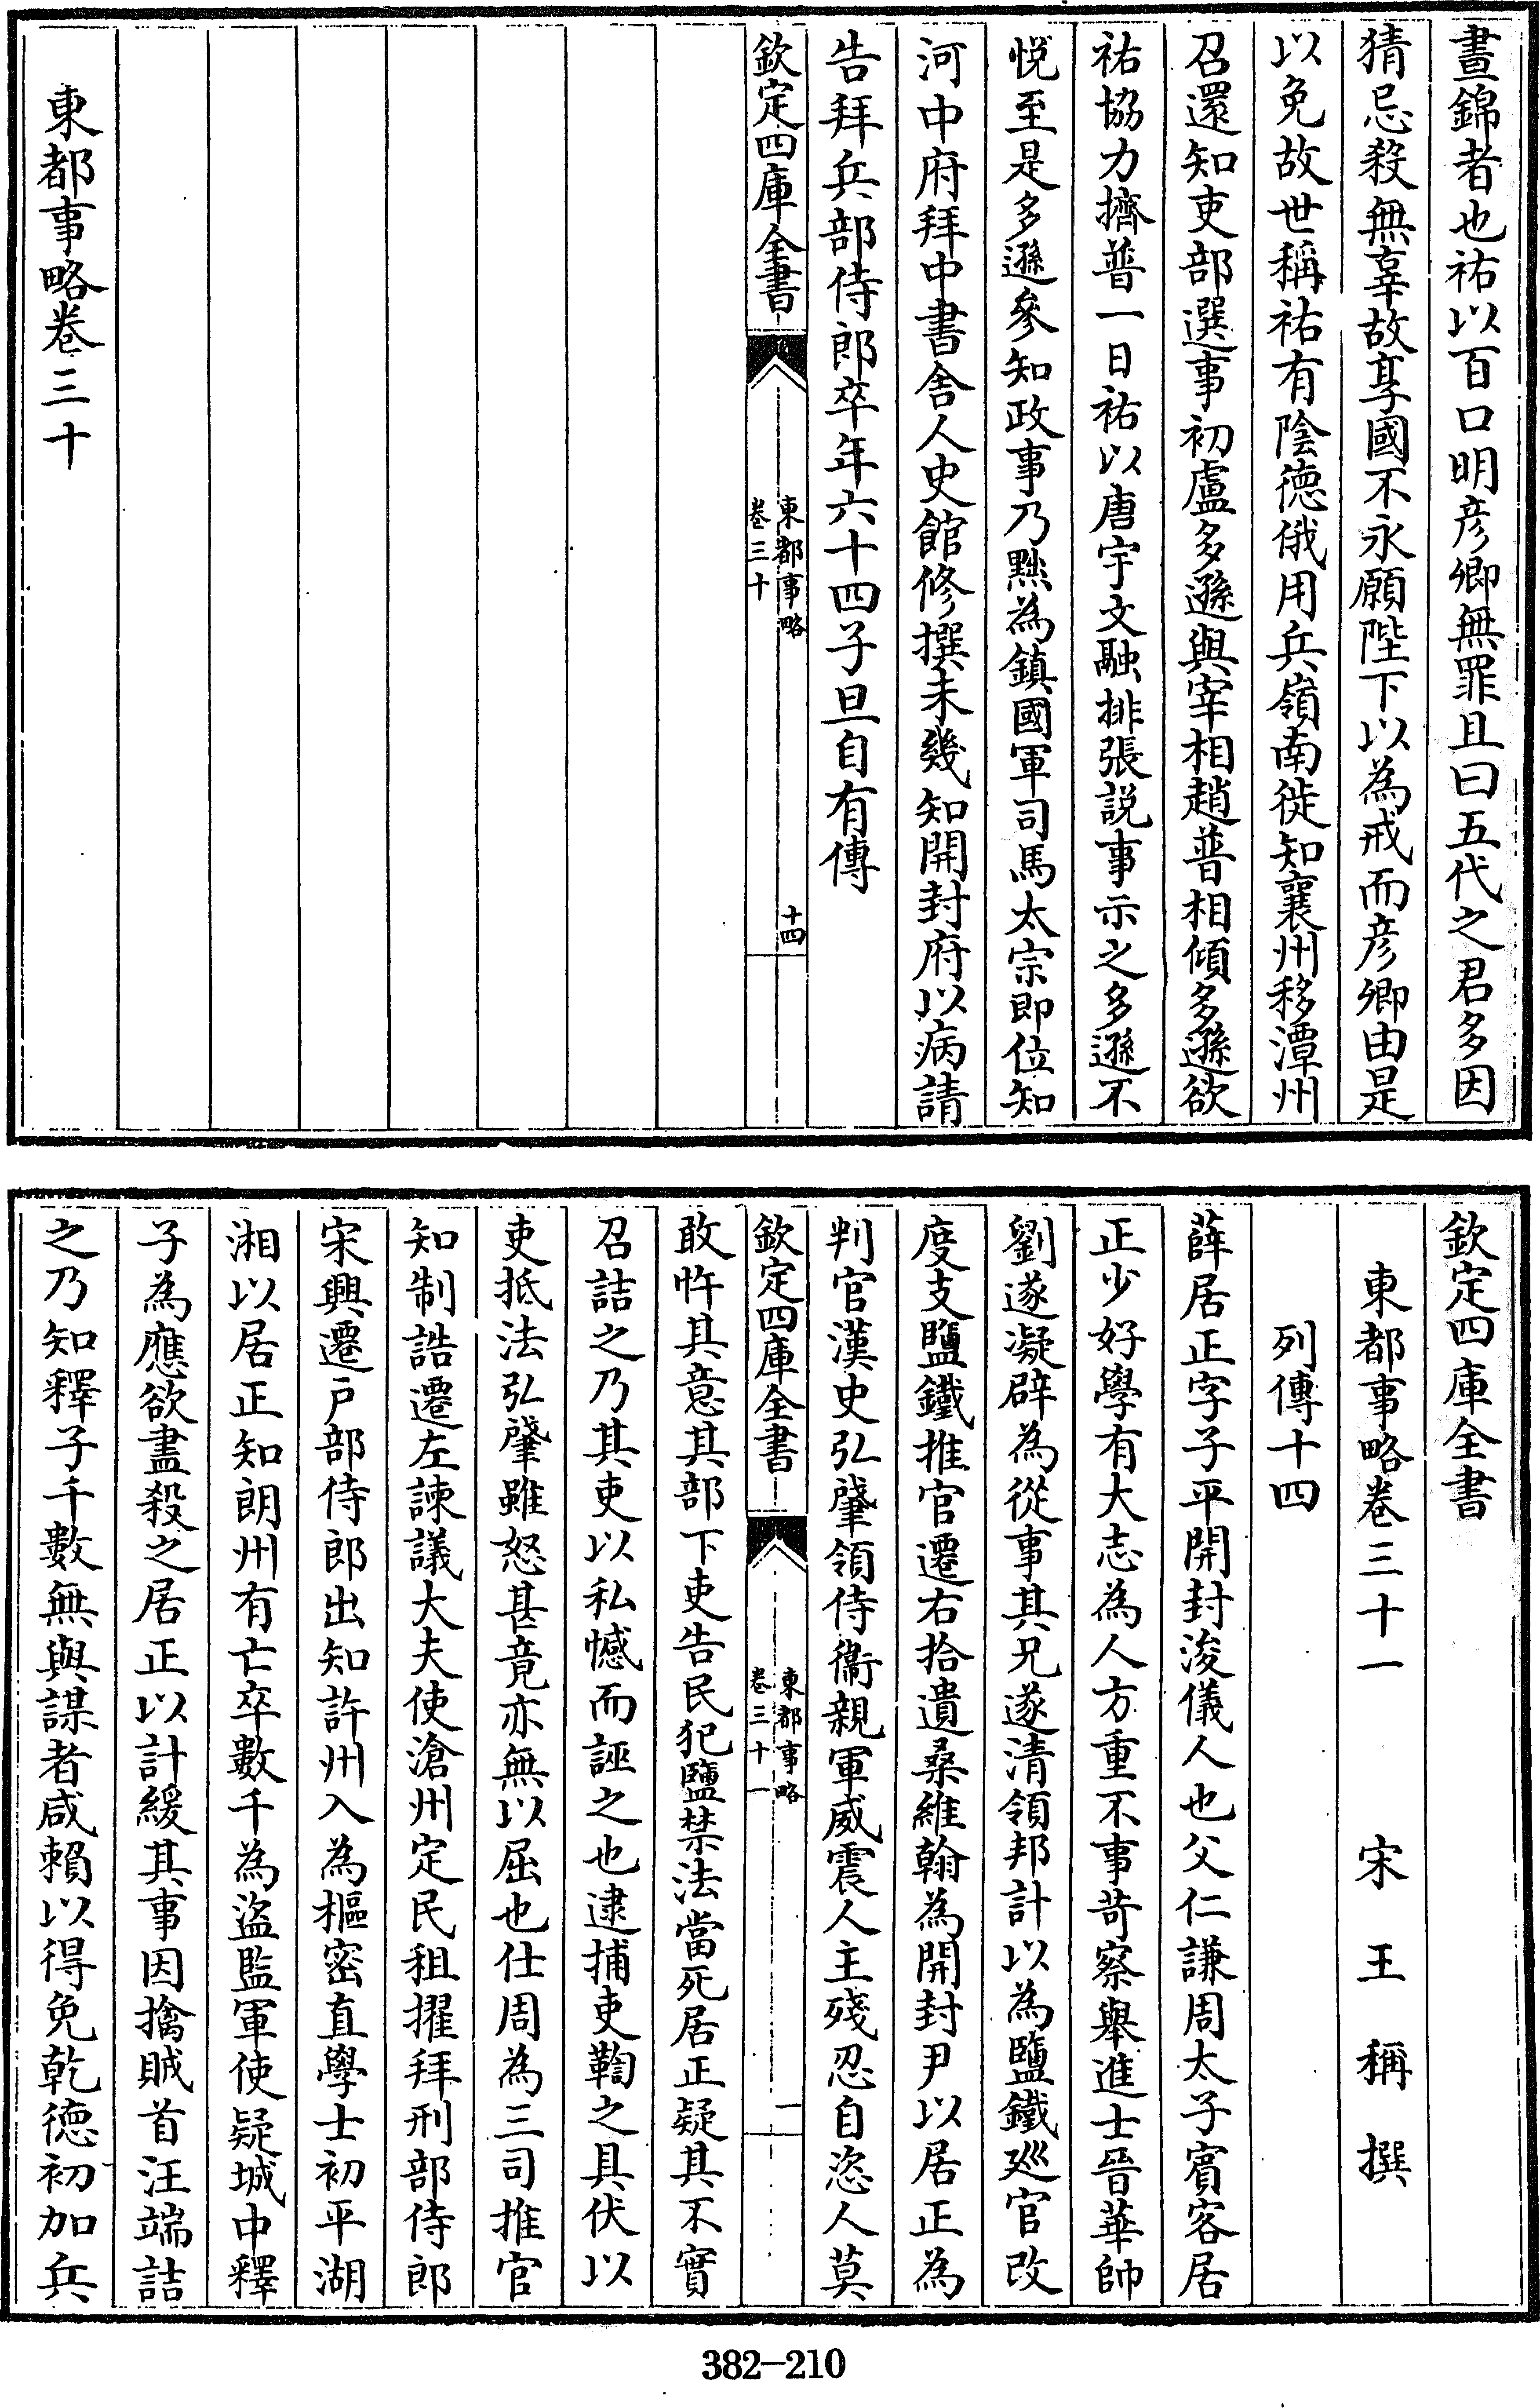 晝錦者也祐以百口明彦卿無罪且曰五代之君多因
猜忌殺無辜故享國不永願陛下以為戒而彦卿由是
以免故世稱祐有陰德俄用兵嶺南徙知襄州移潭州
召還知吏部選事初盧多遜與宰相趙普相傾多遜欲
祐協力擠普一日祐以唐宇文融排張説事示之多遜不
悦至是多遜參知政事乃黜為鎮國軍司馬太宗即位知
河中府拜中書舍人史館修撰未幾知開封府以病請
告拜兵部侍郎卒年六十四子旦自有傳
欽定四庫全書
東都事略
卷三十
十四
東都事略卷三十
欽定四庫全書
東都事略卷三十一
宋王稱撰
列傳十四
薛居正字子平開封浚儀人也父仁謙周太子賓客居
正少好學有大志為人方重不事苛察舉進士晉華帥
劉遂凝辟為從事其兄遂清領邦計以為鹽鐵廵官改
度支鹽鐵推官遷右拾遺桑維翰為開封尹以居正為
判官漢史弘肇領侍衞親軍威震人主殘忍自恣人莫
欽定四庫全書
東都事略
卷三十一
一
敢忤其意其部下吏告民犯鹽禁法當死居正疑其不實
召詰之乃其吏以私憾而誣之也逮捕吏鞫之具伏以
吏抵法弘肇雖怒甚竟亦無以屈也仕周為三司推官
知制誥遷左諫議大夫使滄州定民租擢拜刑部侍郎
宋興遷户部侍郎出知許州入為樞密直學士初平湖
湘以居正知朗州有亡卒數千為盜監軍使疑城中釋
子為應欲盡殺之居正以計緩其事因擒賊首汪端詰
之乃知釋子千數無與謀者咸賴以得免乾德初加兵
382-210